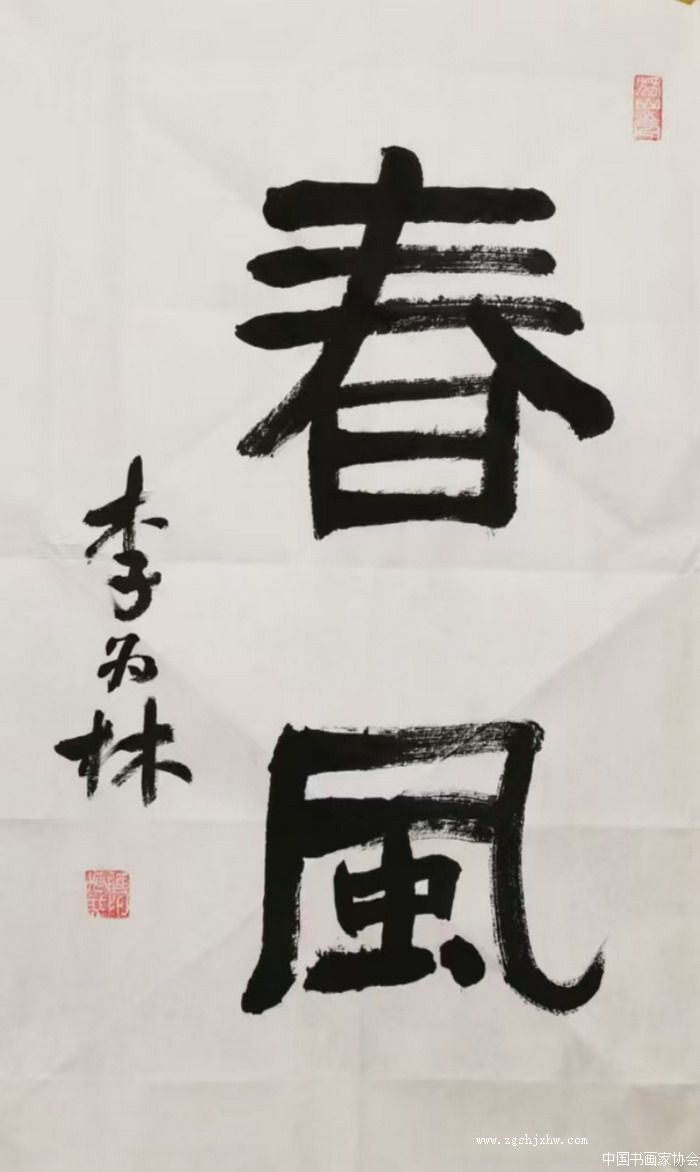 春風
李为林
www.zgshjxhw.com
中国书画家协会